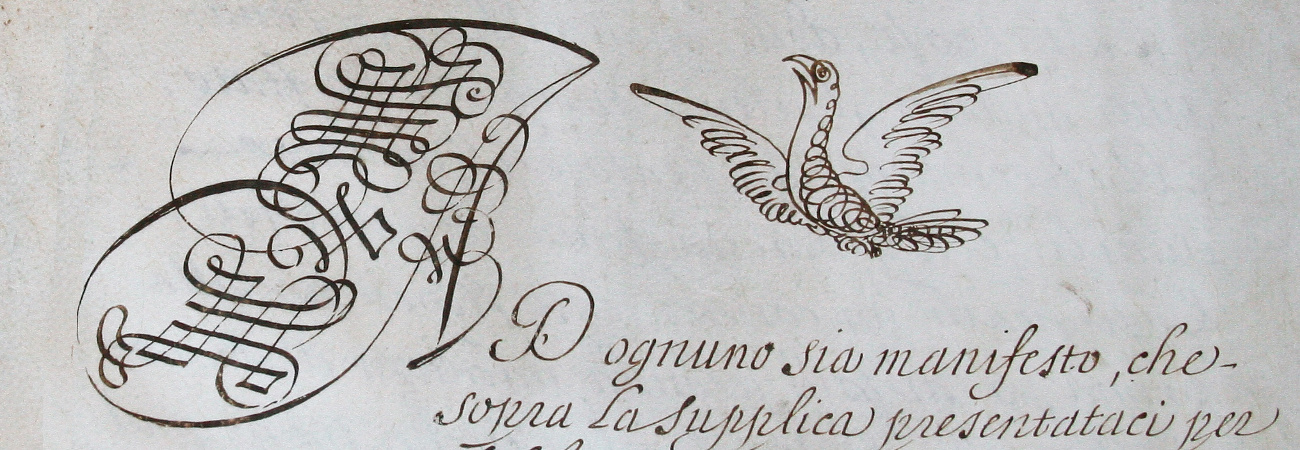 AD ognuno sia manifesto, che-
sopra La supplica presentataci per